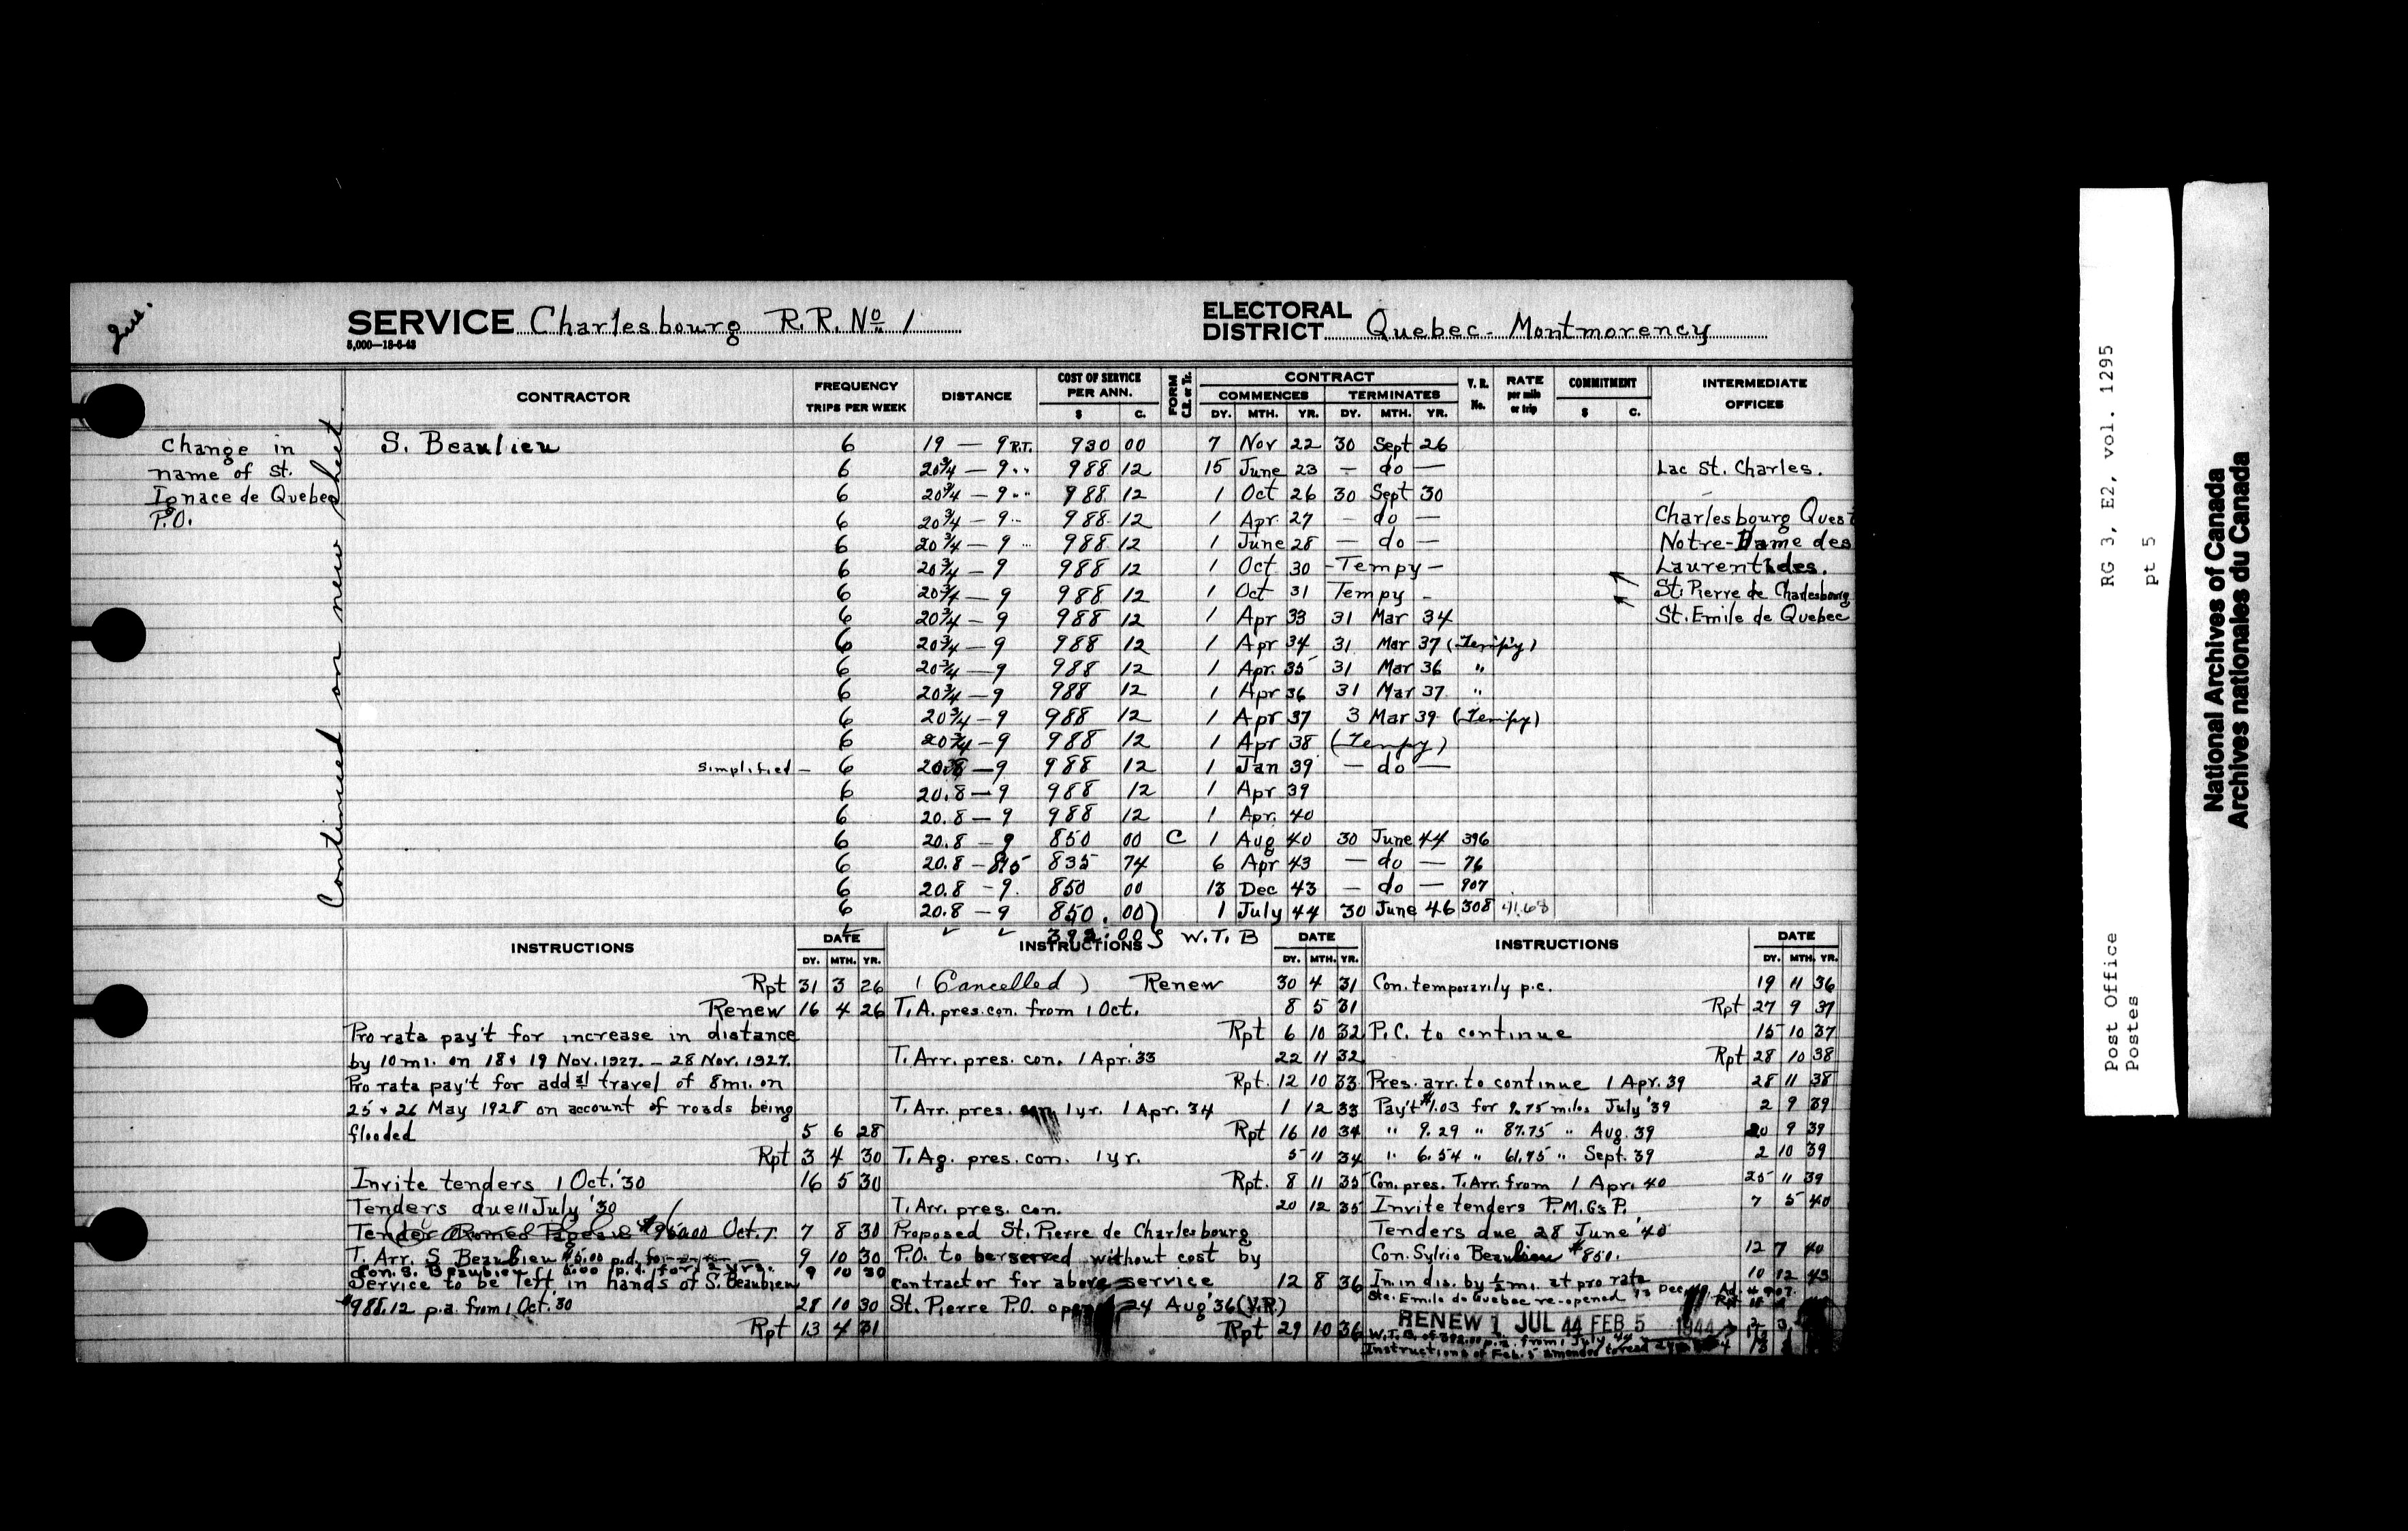 SERVICE Charlesbourg R.R. No 1
5,000—18-6-43
ELECTORAL DISTRICT Quebec - Montmorency
Change in
name of St.
Ignace de Quebec
P.O.
Continued on new sheet
CONTRACTOR FREQUENCY TRIPS PER WEEK DISTANCE COST OF SERVICE PER ANN. $ C. FORM C.E. or Tr. CONTRACT COMMENCES DY. MTH. YR. TERMINATES DY. MTH. YR. V.R. No. RATE per mile or trip COMMITMENT $ C. INTERMEDIATE OFFICES
S. Beaulieu 6 19 — 9 R.T. 930 00 7 Nov 22 30 Sept 26
6 20¾ — 9 " " 988 12 15 June 23 — do — Lac St. Charles.
6 20¾ — 9 " " 988 12 1 Oct 26 30 Sept 30
6 20¾ — 9 " " 988 12 1 Apr. 27 — do — Charlesbourg Ouest
6 20¾ — 9 " " 988 12 1 June 28 — do — Notre-Dame des
6 20¾ — 9 988 12 1 Oct 30 - Tempy - Laurentides.
6 20¾ — 9 988 12 1 Oct 31 Tempy - St. Pierre de Charlesbourg
6 20¾ — 9 988 12 1 Apr 33 31 Mar 34 St. Emile de Quebec
6 20¾ — 9 988 12 1 Apr 34 31 Mar 37 (Tempy)
6 20¾ — 9 988 12 1 Apr. 35 31 Mar 36 "
6 20¾ — 9 988 12 1 Apr 36 31 Mar 37 "
6 20¾ — 9 988 12 1 Apr 37 3 Mar 39 (Tempy)
6 20¾ — 9 988 12 1 Apr 38 (Tempy)
Simplified — 6 20.8 — 9 988 12 1 Jan 39 — do —
6 20.8 — 9 988 12 1 Apr 39
6 20.8 — 9 988 12 1 Apr. 40
6 20.8 — 9 850 00 C 1 Aug 40 30 June 44 396
6 20.8 — 8.15 835 74 6 Apr 43 — do — 76
6 20.8 — 9. 850 00 13 Dec 43 — do — 907
6 20.8 — 9 850.00 1 July 44 30 June 46 308 41.68
392.00 W.T.B
INSTRUCTIONS DATE DY. MTH. YR.
Rpt 31 3 26
Renew 16 4 26
Pro rata pay't for increase in distance
by 10 mi. on 18 & 19 Nov. 1927. — 28 Nov. 1927.
Pro rata pay't for addal travel of 8 mi. on
25 & 26 May 1928 on account of roads being
flooded 5 6 28
Rpt 3 4 30
Invite tenders 1 Oct. '30 16 5 30
Tenders due 11 July '30
Tender Oct. 1. 7 8 30
T. Arr. S. Beaubien $5.00 p.d. for 9 10 30
Con. S. Beaubien 5.00 p.d. for 2 yrs. 9 10 30
Service to be left in hands of S. Beaubien
$988.12 p.a. from 1 Oct. '30 28 10 30
Rpt 13 4 31
INSTRUCTIONS DATE DY. MTH. YR.
(Cancelled) Renew 30 4 31
T.A. pres. con. from 1 Oct. 8 5 31
Rpt 6 10 32
T. Arr. pres. con. 1 Apr. '33 22 11 32
Rpt. 12 10 33
T. Arr. pres. con. 1 yr. 1 Apr. 34 1 12 33
Rpt 16 10 34
T. Ag. pres. con. 1 yr. 5 11 34
Rpt. 8 11 35
T. Arr. pres. con. 20 12 35
Proposed St. Pierre de Charlesbourg
P.O. to be served without cost by
contractor for above service 12 8 36
St. Pierre P.O. open 24 Aug '36 (V.R.)
Rpt 29 10 36
INSTRUCTIONS DATE DY. MTH. YR.
Con. temporarily p.c. 19 11 36
Rpt 27 9 37
P.C. to continue 15 10 37
Rpt 28 10 38
Pres. arr. to continue 1 Apr. 39 28 11 38
Pay't $1.03 for 9.75 miles July '39 2 9 39
" 9.29 " 87.75 " Aug. 39 20 9 39
" 6.54 " 61.75 " Sept. 39 2 10 39
Con. pres. T. Arr. from 1 Apr. 40 25 11 39
Invite tenders P.M. Gs P. 7 5 40
Tenders due 28 June '40
Con. Sylvio Beaulieu $850. 12 7 40
In. in dis. by ½ mi. at pro rata 10 12 43
Ste. Emile de Quebec re-opened 13 Dec Ad. # 907.
RENEW 1 JUL 44 FEB 5 1944
W.T.B. of 392.00 p.a. from 1 July 44
Instructions of Feb. 5 amended to read
RG 3, E2, vol. 1295
pt 5
Post Office
Postes
National Archives of Canada
Archives nationales du Canada